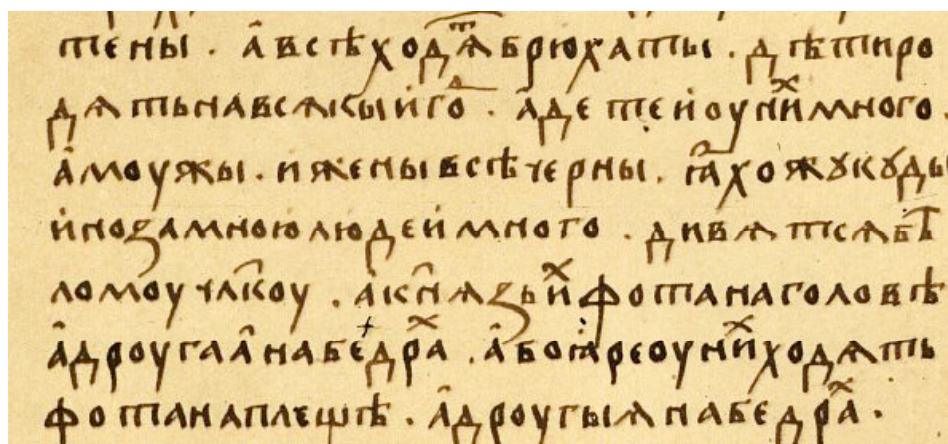 тены . а всѣ ходѧ͡т брюхаты . дѣти ро
дѧть на всѧкыи го͡д . а детеи оу ни͡х много .
а моужы . и жены всѣ черны . ꙗ хожꙋ кꙋды
ино за мною людеи много . дивѧтсѧ бѣ
ломоу чл͡коу . а кнѧзь и͡х фота на головѣ
а дроугаа на бедра͡х . а боꙗре оу ни͡х ходѧть
фота на плещѣ . а дроугыѧ на бедра͡х .